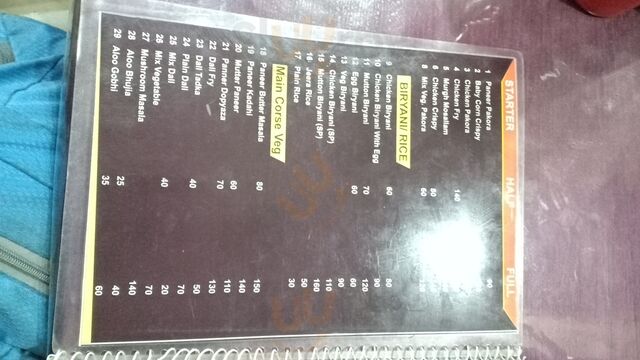 STARTER HALF FULL
1 Paneer Pakora 90
2 Baby Corn Crispy
3 Chicken Pakora
4 Chicken Fry 140
5 Murga Mosallam
6 Chicken Crispy 80
8 Mix Veg. Pakora 60
BIRYANI/ RICE
9 Chicken Biryani 60 80
10 Chicken Biryani With Egg 90
11 Mutton Biryani 70 120
12 Egg Biryani 60 60
13 Veg Biryani 90
14 Chicken Biryani (SP) 110
15 Mutton Biryani (SP) 160
16 Jeera Rice 50
17 Plain Rice 30
Main Corse Veg
18 Paneer Butter Masala 80 150
19 Paneer Kadahi
20 Mutter Paneer 60 140
21 Paneer Dopyaza 70 110
22 Dall Fry 130
23 Dall Tadka 40 50
24 Plain Dall 70
25 Mix Dall 20
26 Mix Vegetable 40 70
27 Mushroom Masala 140
28 Aloo Bhujia 25 40
29 Aloo Gobhi 35 60